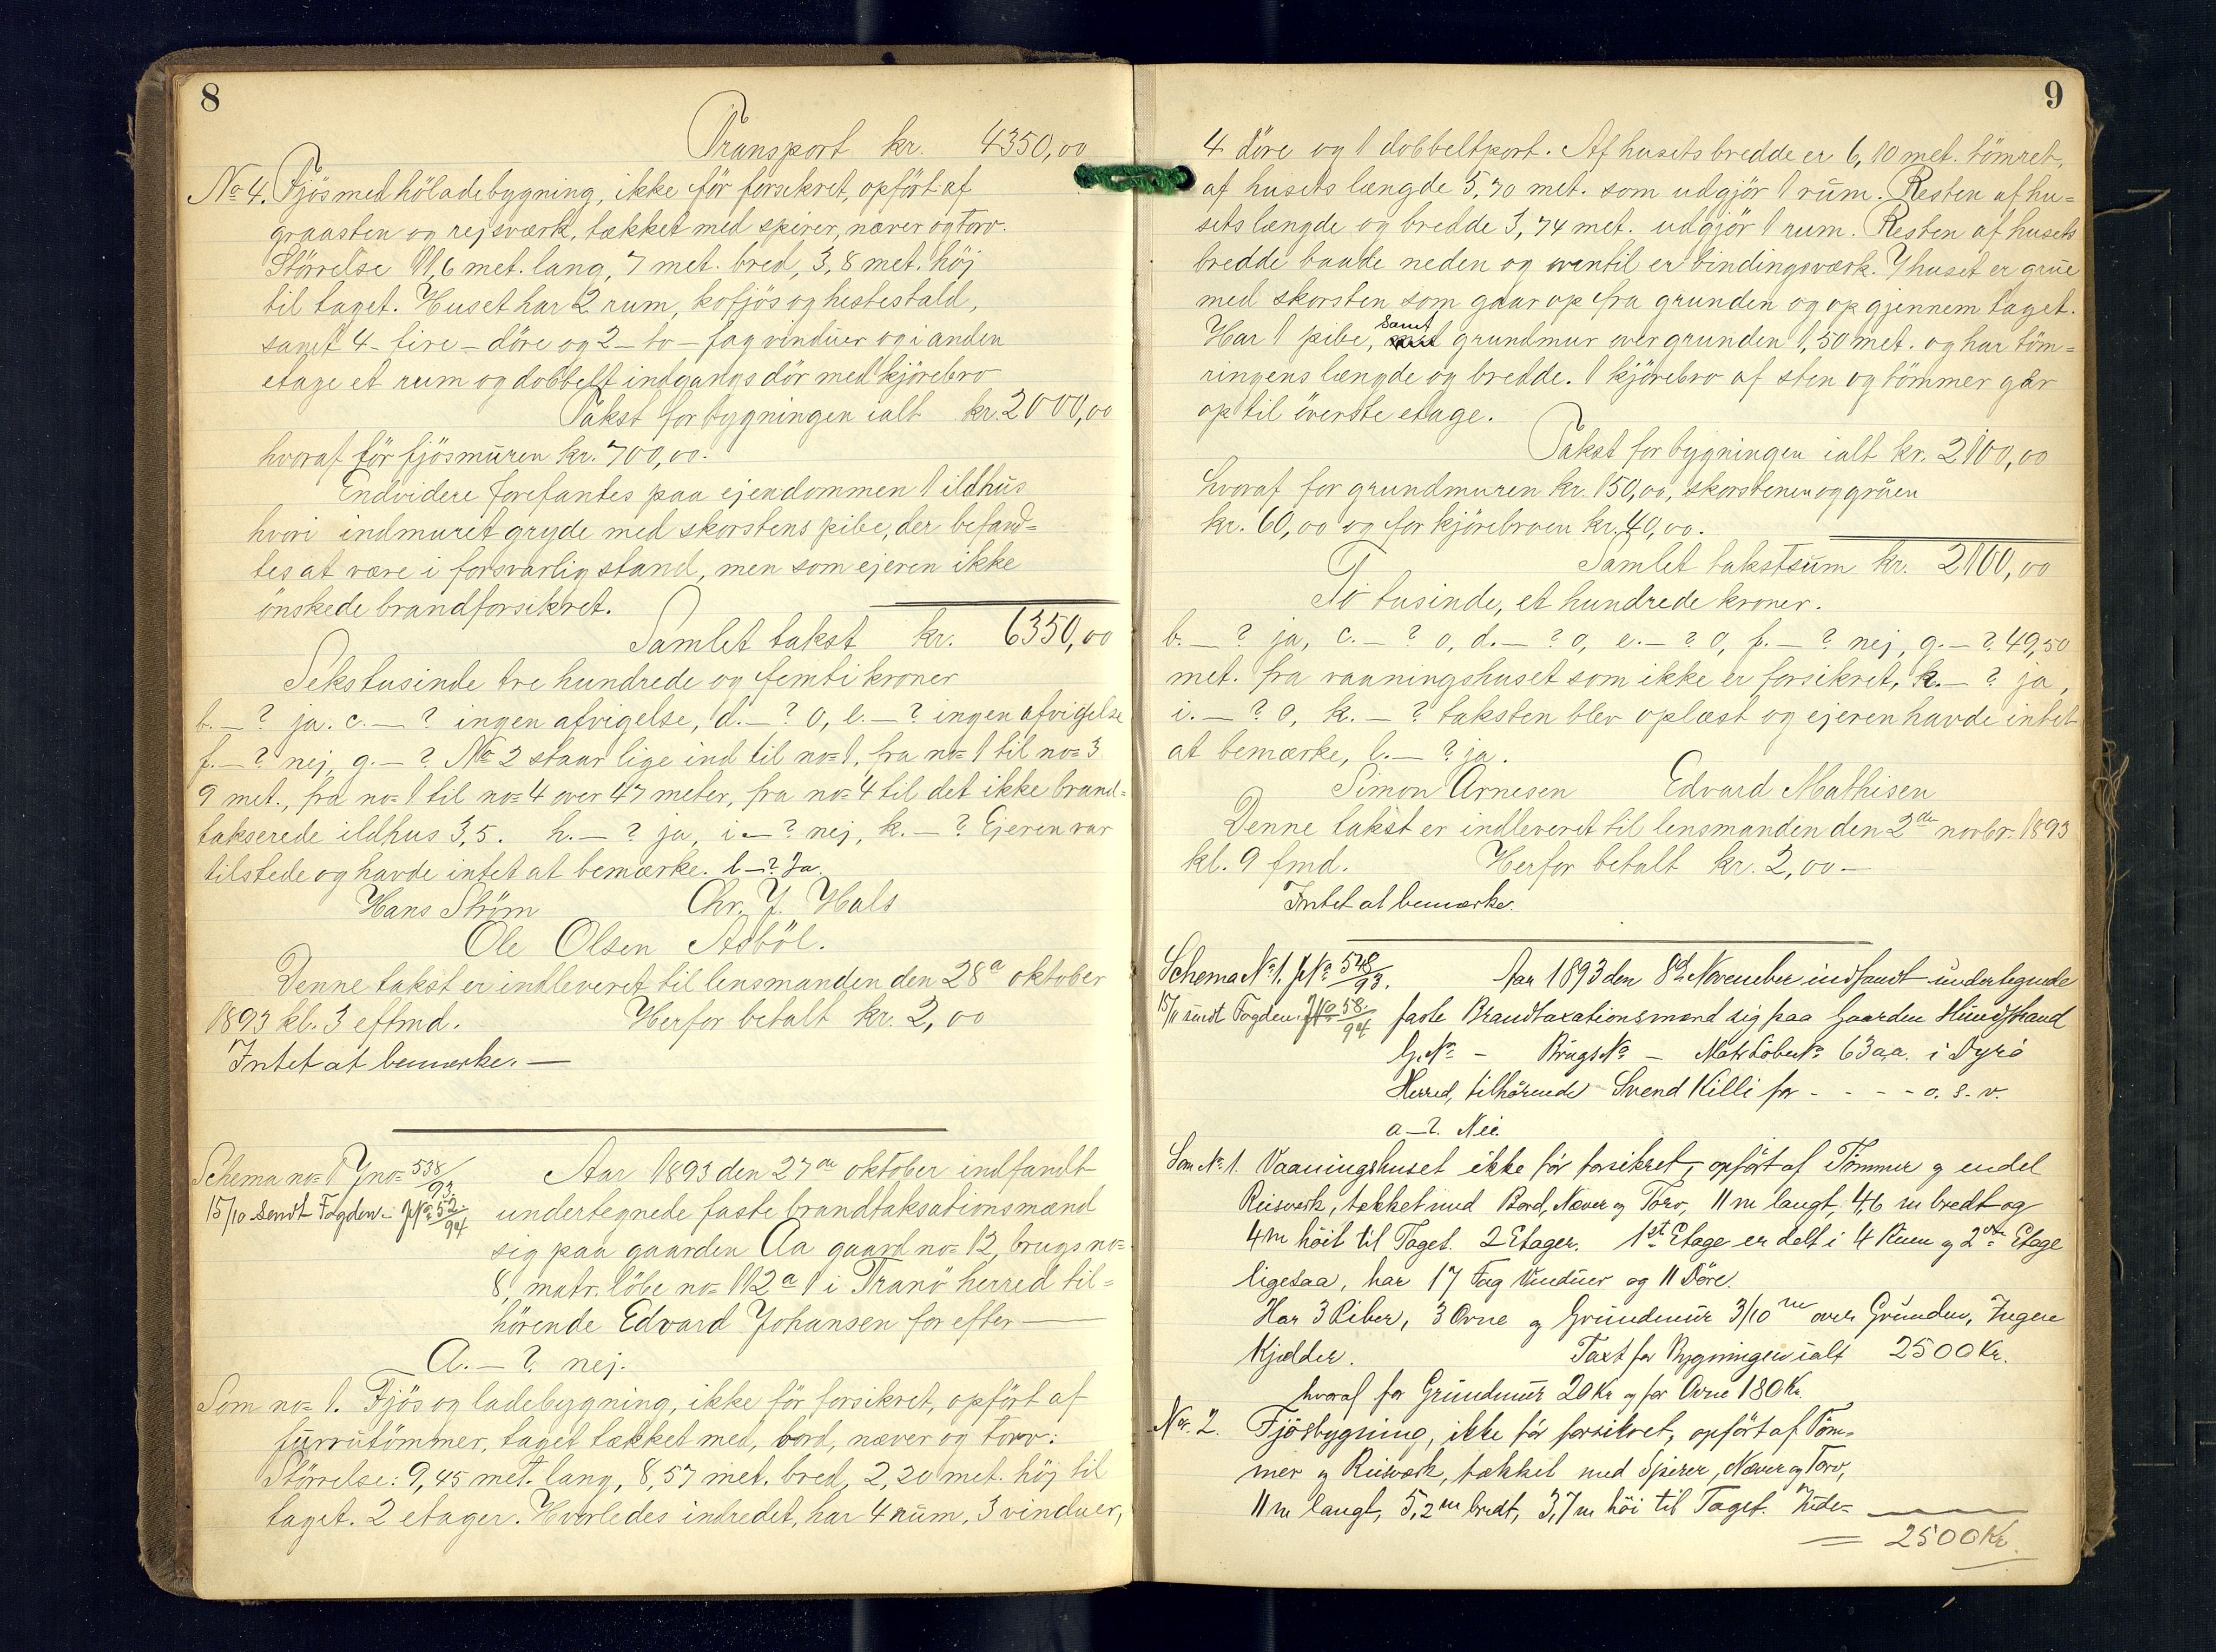 8
Transport kr. 4350,00
No 4. Fjös med höladebygning, ikke för forsikret, opfört af
graasten og rejsværk, tækket med spirer, næver og torv.
Störrelse 11,6 met. lang, 7 met. bred, 3,8 met. höj
til taget. Huset har 2 rum, kofjös og hestestald,
samt 4 - fire - döre og 2 - to - fag vinduer og i anden
etage et rum og dobbelt indgangsdör med kjörebro
Takst for bygningen ialt kr. 2000,00
hvoraf för fjösmuren kr. 700,00.
Endvidere forefantes paa ejendommen 1 ildhus
hvori indmuret gryde med skorstens pibe, der befand=
tes at være i forsvarlig stand, men som ejeren ikke
önskede brandforsikret.
Samlet takst kr. 6350,00
Sekstusinde tre hundrede og femti kroner
b. - ? ja. c. - ? ingen afvigelse, d. - ? 0, e. - ? ingen afvigelse
f. - ? nej, g. - ? No 2 staar lige ind til no= 1, fra no= 1 til no= 3
9 met., fra no= 1 til no= 4 over 47 meter, fra no= 4 til det ikke brand=
takserede ildhus 3,5. h. - ? ja, i - ? nej, k. - ? Ejeren var
tilstede og havde intet at bemærke. l - ? Ja.
Hans Ström Chr. J. Hals
Ole Olsen Asböl.
Denne takst er indleveret til lensmanden den 28de oktober
1893 kl. 3 eftmd. Herfor betalt kr. 2,00
Intet at bemærke. —
Schema no= 1 Jno= 538/93. Aar 1893 den 27de oktober indfandt
15/10 sendt Fogden. JNo 52/94 undertegnede faste brandtaksationsmænd
sig paa gaarden Aa gaard no= 12, brugs no=
8, matr. löbe no= 112a1 i Tranö herred til=
hörende Edvard Johansen for efter —
A. - ? nej.
Som no= 1. Fjös og ladebygning, ikke för forsikret, opfört af
furrutömmer, taget tækket med, bord, næver og torv:
Störrelse: 9,45 met. lang, 8,57 met. bred, 2,20 met. höj til
taget. 2 etager. Hvorledes indredet, har 4 rum, 3 vinduer,
9
4 döre og 1 dobbeltport. Af husets bredde er 6,10 met. tömret,
af husets længde 5,70 met. som udgjör 1 rum. Resten af hu=
sets længde og bredde 3,74 met. udgjör 1 rum. Resten af husets
bredde baade neden og oventil er bindingsværk. I huset er grue
med skorsten som gaar op fra grunden og op gjennem taget.
Har 1 pibe, samt grundmur over grunden 1,50 met. og har töm=
ringens længde og bredde. 1 kjörebro af sten og tömmer går
op til överste etage.
Takst for bygningen ialt kr. 2100,00
hvoraf for grundmuren kr. 150,00, skorstenen og grüen
kr. 60,00 og for kjörebroen kr. 40,00.
Samlet takstsum kr. 2100,00
To tusinde, et hundrede kroner.
b. - ? ja, c. - ? 0, d. - ? 0, e. - ? 0, f. - ? nej, g. - ? 49,50
met. fra vaaningshuset som ikke er forsikret, h. - ? ja,
i. - ? 0, k. - ? taksten blev oplæst og ejeren havde intet
at bemærke, l. - ? ja.
Simon Arnesen Edvard Mathisen
Denne takst er indleveret til lensmanden den 2de novbr. 1893
kl. 9 fmd. Herfor betalt kr. 2,00 —
Intet at bemærke.
Schema No 1. JNo 548/93. Aar 1893 den 8de November indfandt undertegnede
15/11 sendt Fogden. JNo 58/94 faste Brandtaxationsmænd sig paa Gaarden Hundstrand
G.No - Brugs No - Matr Löbe No 63aa. i Dyrö
Herred, tilhörende Svend Killi for - - - - o. s. v.
a - ?. Nei.
Som No 1. Vaaningshuset ikke för forsikret, opfört af Tömmer og endel
Reisværk, tækket med Bord, Næver og Torv, 11 m langt, 4,6 m bredt og
4 m höit til Taget. 2 Etager. 1ste Etage er delt i 4 Rum og 2den Etage
ligesaa, har 17 Fag Vinduer og 11 Döre.
Har 3 Piber, 3 Ovne og Grundmur 3/10 m over Grunden, Ingen
Kjelder. Taxt for Bygningen ialt 2500 Kr.
hvoraf for Grundmur 20 Kr og for Ovne 180 Kr.
No. 2. Fjösbygning, ikke för forsikret, opfört af Töm=
mer og Reisværk, tækket med Spirer, Næver og Torv,
11 m langt, 5,2 m bredt, 3,7 m höi til Taget. Inde=
= 2500 Kr.